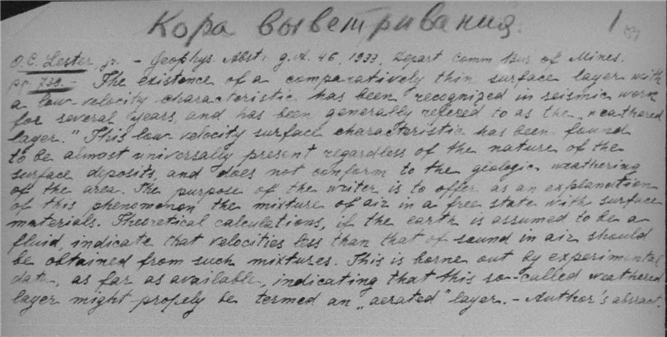 Кора выветривания. 1
O.C. Lester, jr. - Geophys. Abst. 46, 1933, Depart. Comm. Bus of Mines.
pr. 739. - The existence of a comparatively thin surface layer with
a low velocity characteristic has been recognized in seismic work
for several years, and has been generally refered to as the „weathered
layer." This low velocity surface characteristic has been found
to be almost universally present regardless of the nature of the
surface deposits, and does not conform to the geologic weathering
of the area. The purpose of the writer is to offer as an explanation
of this phenomenon the mixture of air in a free state with surface
materials. Theoretical calculations, if the earth is assumed to be a
fluid, indicate that velocities less than that of sound in air should
be obtained from such mixtures. This is borne out by experimental
data, as far as available, indicating that this so-called weathered
layer might propely be termed an „aerated" layer. - Author's absract.